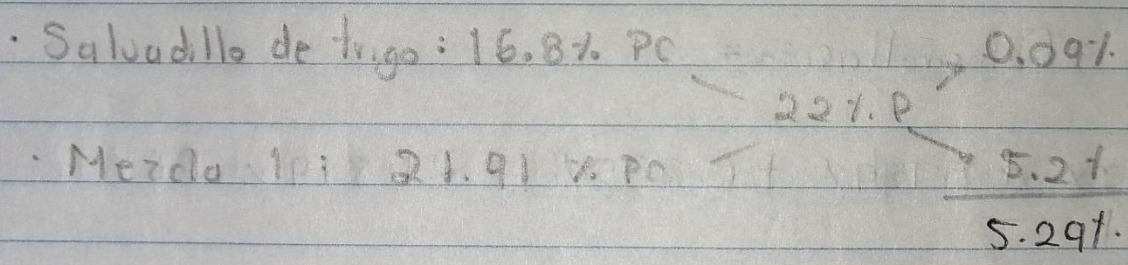 · Salvadillo de trigo: 16.8% PC 0.09%
22%. P
· Mezcla 1: 21.91 % PC 5.2%
5.29%.